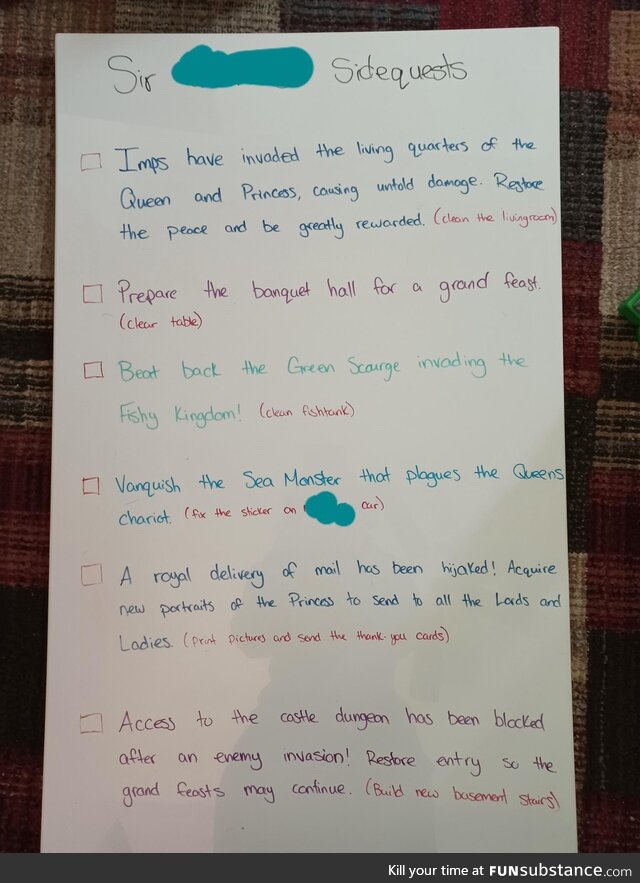 Sir Sidequests
Imps have invaded the living quarters of the
Queen and Princess, causing untold damage. Restore
the peace and be greatly rewarded. (clean the livingroom)
Prepare the banquet hall for a grand feast.
(clear table)
Beat back the Green Scourge invading the
Fishy Kingdom! (clean fishtank)
Vanquish the Sea Monster that plagues the Queens
chariot. (fix the sticker on car)
A royal delivery of mail has been hijaked! Acquire
new portraits of the Princess to send to all the Lords and
Ladies. (Print pictures and send the thank-you cards)
Access to the castle dungeon has been blocked
after an enemy invasion! Restore entry so the
grand feasts may continue. (Build new basement stairs)
Kill your time at FUNsubstance.com